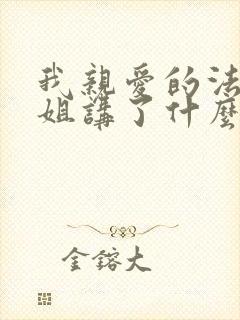 我親愛的法
姐講了什麼
金鎔大